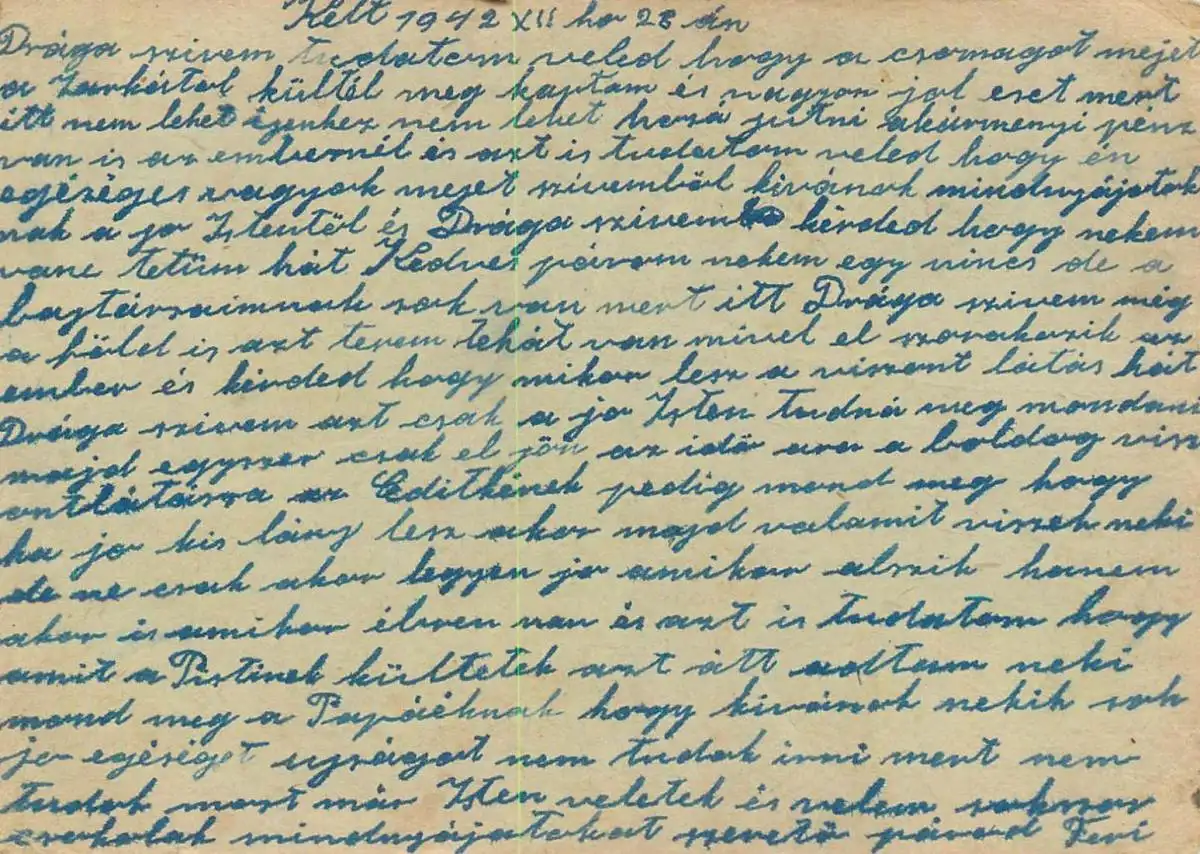 Kelt 1942 XII ho 28 án
Drága szivem tudatom veled hogy a csomagot mejet
a Zarkátol kültél meg kaptam és nagyon jol eset mert
itt nem lehet nem lehet hozá jutni akármenyi pénz
van is az embernél és azt is tudatom veled hogy én
egéséges vagyok mejet szivemböl kivánok mindnyájatok
nak a jo Istentöl és Drága szivem kérded hogy nekem
vane tetüm hát Kedves párom nekem egy nincs de a
bajtársaimnak sok van mert itt Drága szivem még
a föld is azt terem tehát van mivel el szorakozik az
ember és kérded hogy mikor lesz a viszont látás hát
Drága szivem azt csak a jo Isten tudná meg mondani
majd egyszer csak el jön az idö ara a boldog visz
ontlátásra az Editkének pedig mond meg hogy
ha jo kis lány lesz akor majd valamit viszek neki
de ne csak akor legyen jo amikor alszik hanem
akor is amikor ébren van és azt is tudatom hogy
amit a Pistinek kültetek azt átt adtam neki
mond meg a Papáéknak hogy kivánok nekik sok
jo egéséget ujságot nem tudok irni mert nem
tudok most már Isten veletek és velem sokszor
csokolak mindnyájatokat szeretö párod Feri